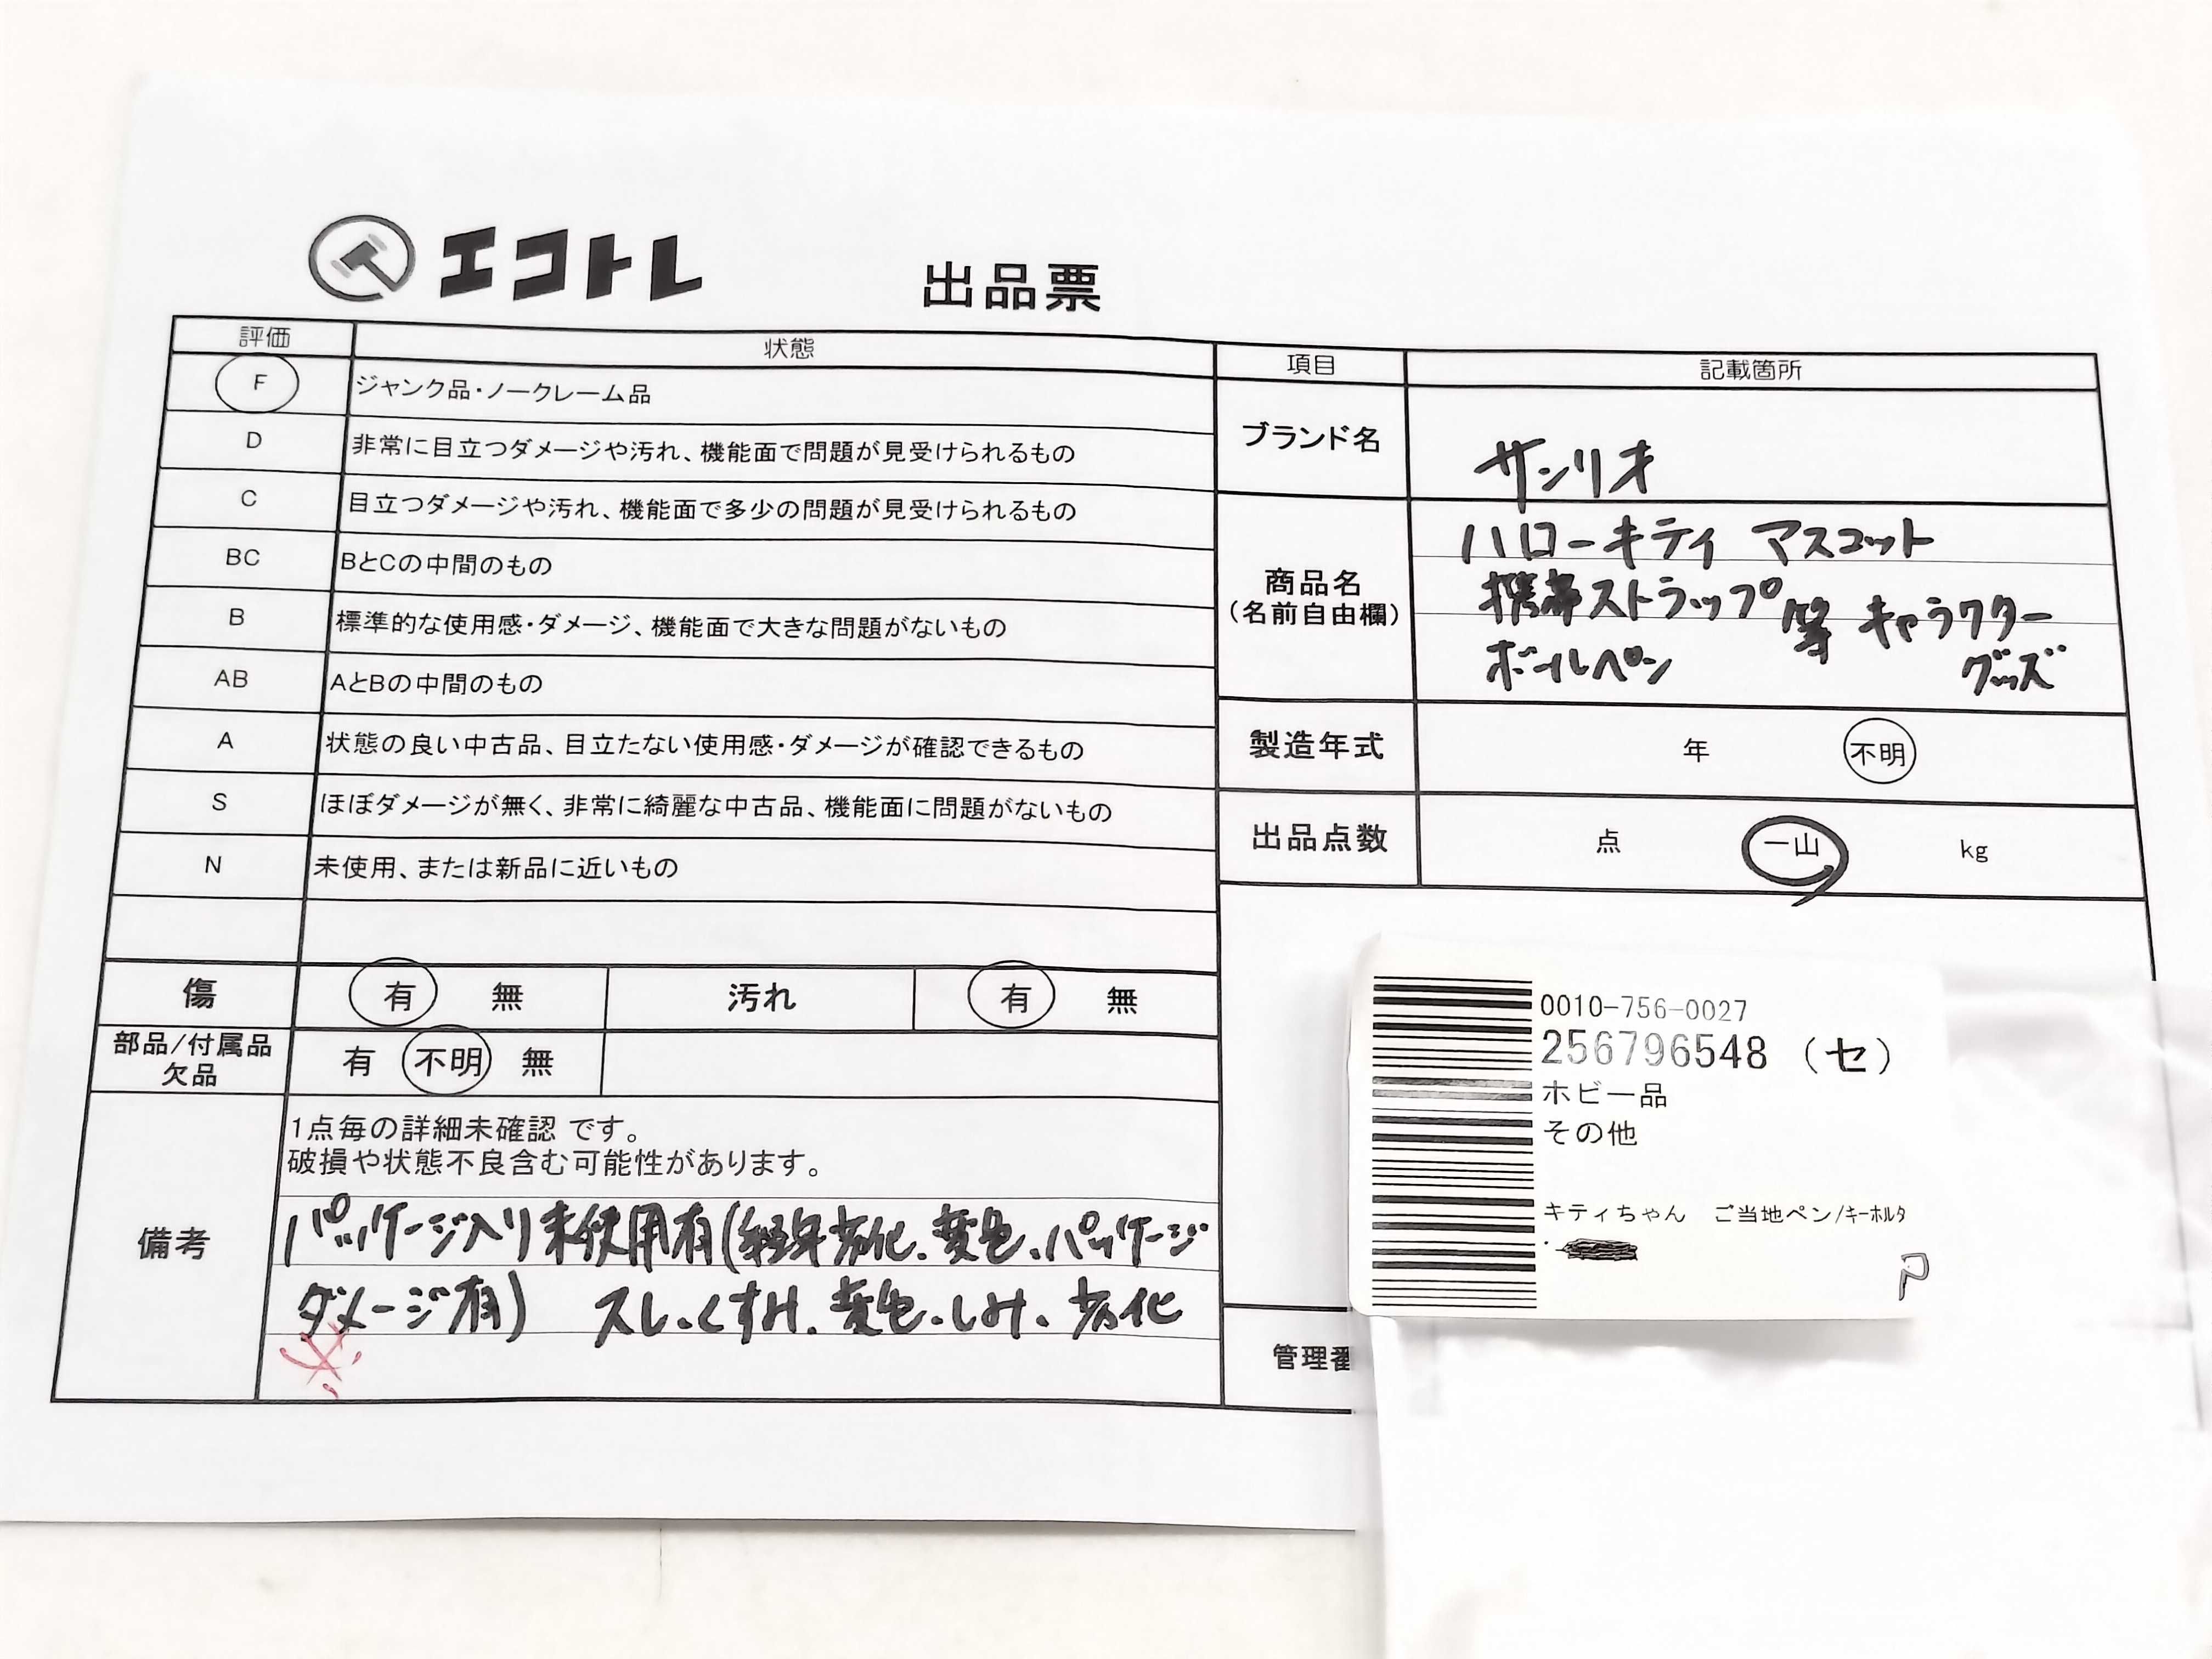 エコトレ
出品票
評価 状態
F ジャンク品・ノークレーム品
D 非常に目立つダメージや汚れ、機能面で問題が見受けられるもの
C 目立つダメージや汚れ、機能面で多少の問題が見受けられるもの
BC BとCの中間のもの
B 標準的な使用感・ダメージ、機能面で大きな問題がないもの
AB AとBの中間のもの
A 状態の良い中古品、目立たない使用感・ダメージが確認できるもの
S ほぼダメージが無く、非常に綺麗な中古品、機能面に問題がないもの
N 未使用、または新品に近いもの
傷 有 無 汚れ 有 無
部品/付属品
欠品
有 不明 無
備考
1点毎の詳細未確認 です。
破損や状態不良含む可能性があります。
パッケージ入り未使用有(経年劣化、変色、パッケージ
ダメージ有) スレ、くすみ、変色、しみ、劣化
項目 記載箇所
ブランド名 サンリオ
商品名
(名前自由欄)
ハローキティ マスコット
携帯ストラップ等 キャラクター
ボールペン グッズ
製造年式 年 不明
出品点数 点 一山 kg
管理番
0010-756-0027
256796548 (セ)
ホビー品
その他
キティちゃん ご当地ペン/キーホルタ
P